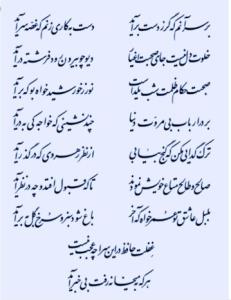 بر سر آنم که گر ز دست برآید دست به کاری زنم که غصه سر آید
خلوت دل نیست جای صحبت دیو چو بیرون رود فرشته درآید
صحبت حکام ظلمت شب یلداست نور ز خورشید خواه بو که برآید
بر در ارباب بی مروت دنیا چند نشینی که خواجه کی به درآید
ترک گدایی مکن که گنج بیابی از نظر رهروی که در گذر آید
صالح و طالح متاع خویش نمودند تا که قبول افتد و چه در نظر آید
بلبل عاشق تو عمر خواه که آخر باغ شود سبز و سرخ گل به بر آید
غفلت حافظ در این سراچه عجب نیست
هر که به میخانه رفت بی خبر آید